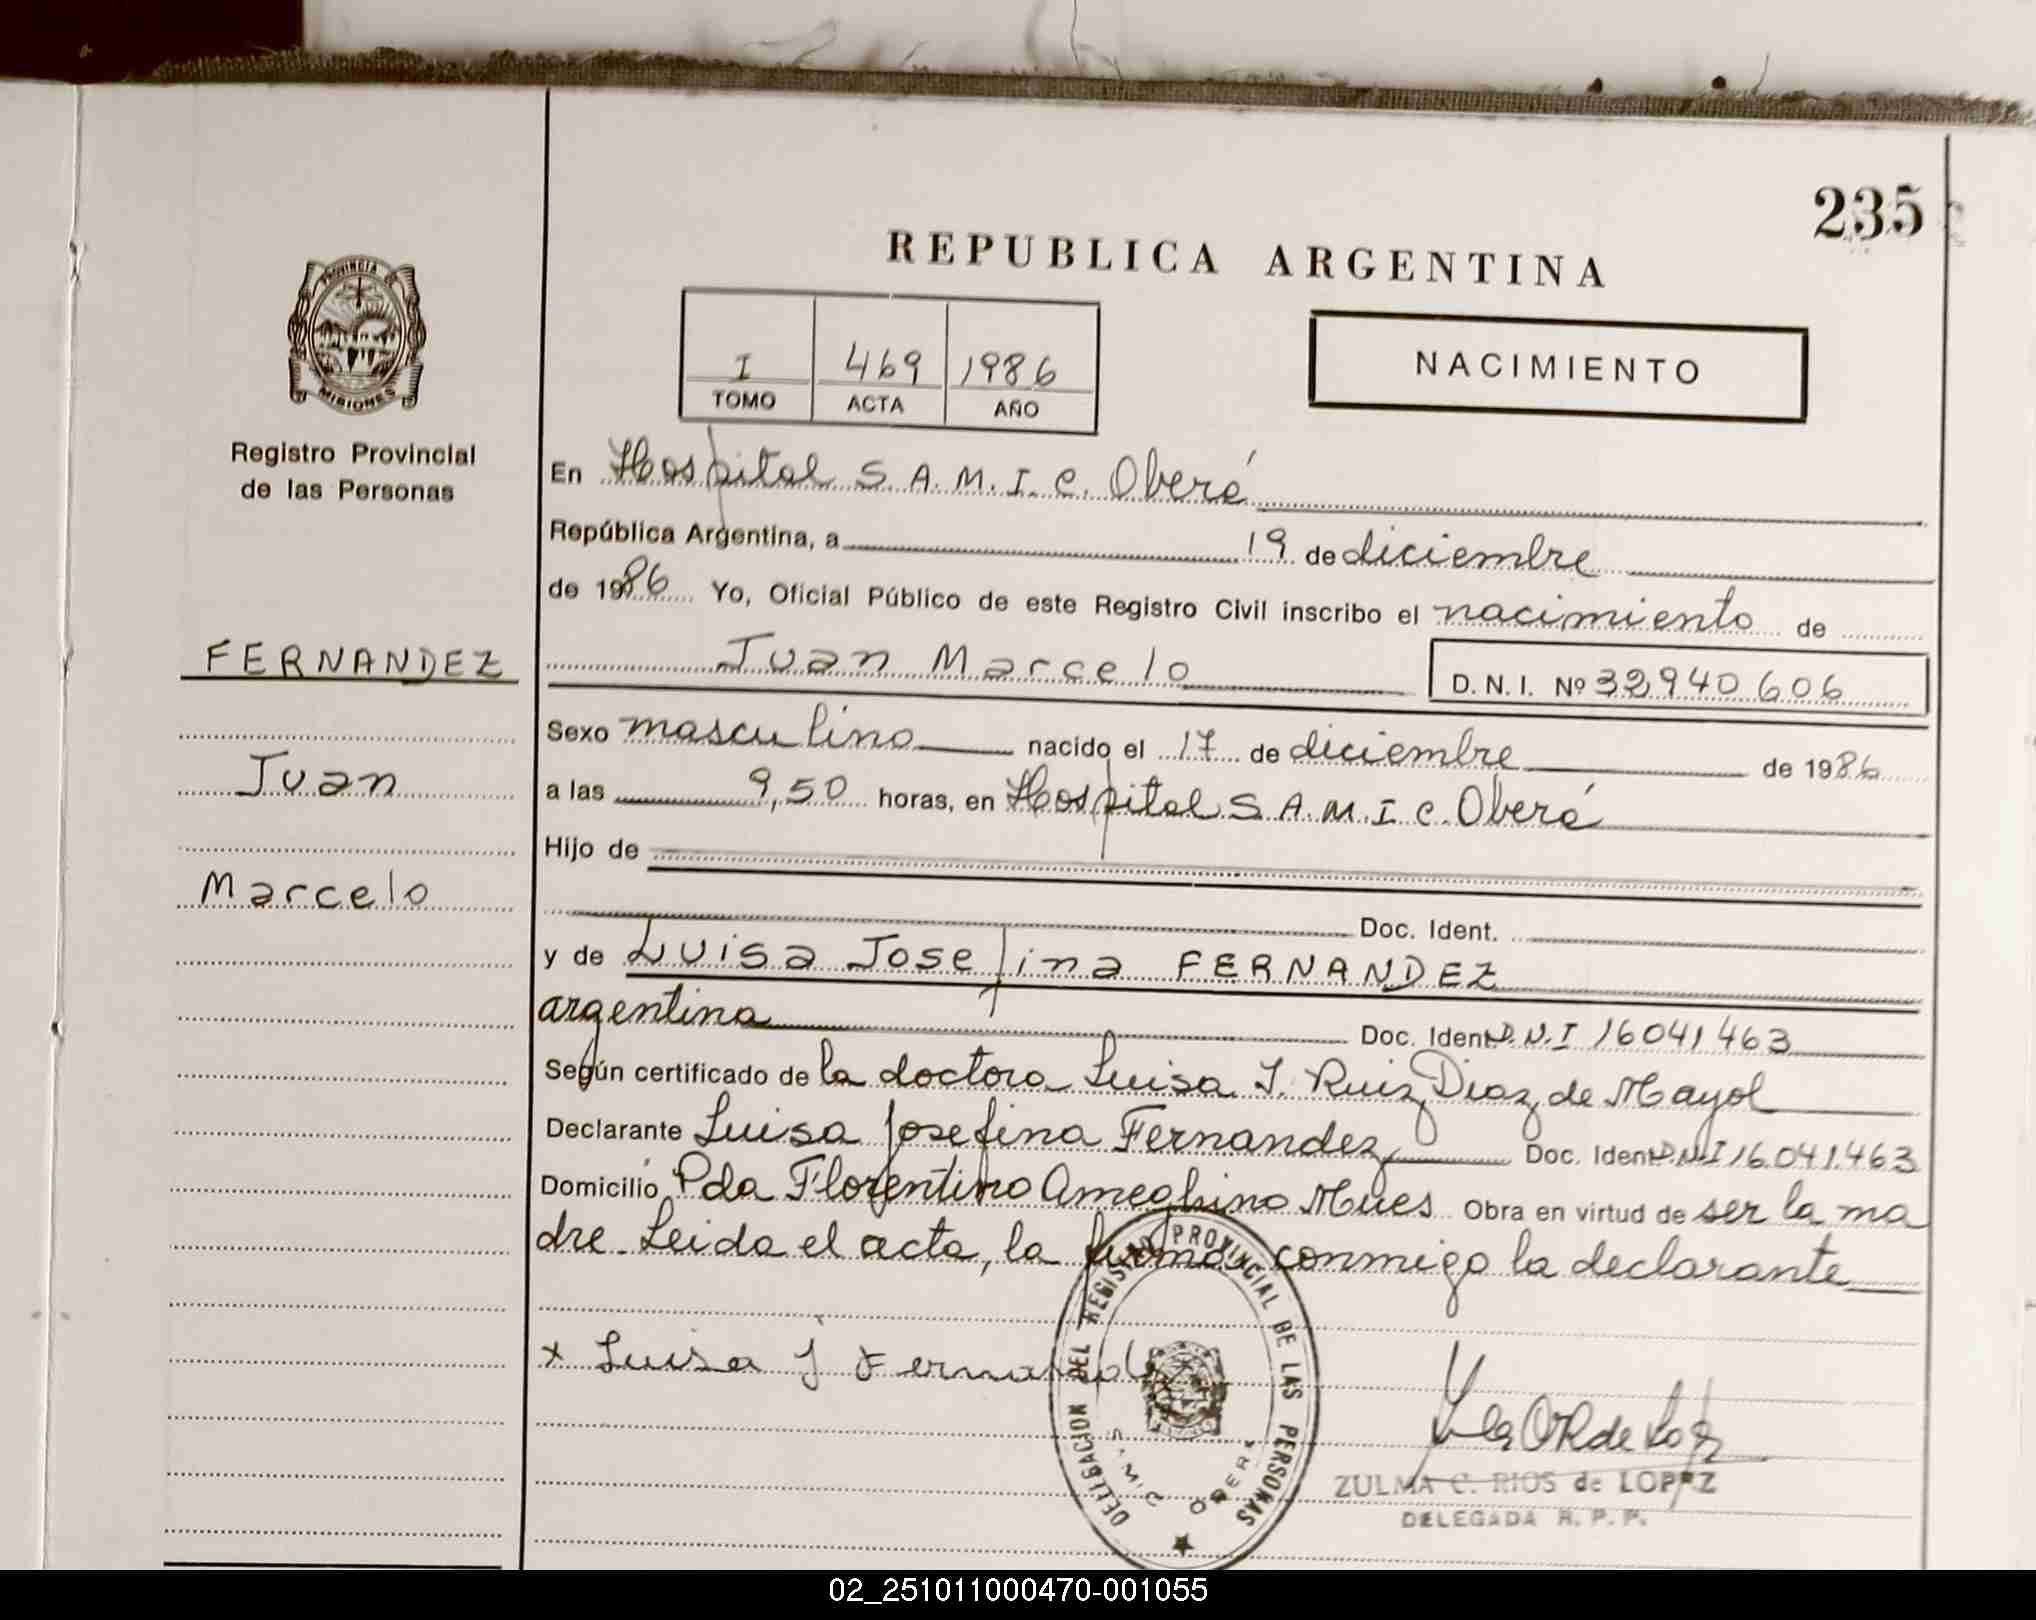 235
REPUBLICA ARGENTINA
PROVINCIA
MISIONES
I 469 1986
TOMO ACTA AÑO
NACIMIENTO
Registro Provincial
de las Personas
En Hospital S.A.M.I.C. Oberá
República Argentina, a 19 de diciembre
de 1986 Yo, Oficial Público de este Registro Civil inscribo el nacimiento de
FERNANDEZ
Juan Marcelo D.N.I. Nº 32940606
Sexo masculino nacido el 17 de diciembre de 1986
Juan
a las 9,50 horas, en Hospital S.A.M.I.C. Oberá
Hijo de
Marcelo
Doc. Ident.
y de Luisa Josefina FERNANDEZ
argentina Doc. Ident D.N.I 16041463
Según certificado de la doctora Luisa J. Ruiz Diaz de Mayol
Declarante Luisa Josefina Fernandez Doc. Ident D.N.I 16.041.463
Domicilio Pda Florentino Ameghino Mnes Obra en virtud de ser la ma
dre. Leida el acta, la firma conmigo la declarante
x Luisa J Fernandez
DELEGACION DEL REGISTRO PROVINCIAL DE LAS PERSONAS
SAMIC OBERA
ZULMA C. RIOS de LOPEZ
DELEGADA R. P. P.
02_251011000470-001055